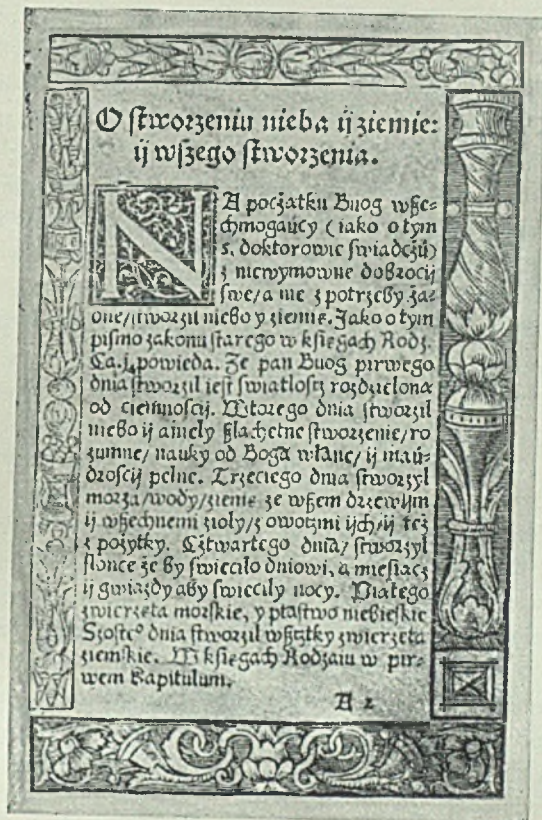 O stworzeniu nieba ij ziemie:
ij wszego stworzenia.
NA początku Buog wsze-
chmogaucy (iako o tym
s. doktorowie swiadczű)
z niewymowne dobrocij
swe/a nie z potrzeby ża-
dne/stworzil niebo y ziemie. Jako o tym
pismo zakonu starego w księgach Rodz.
Ca. j. powieda. Ze pan Buog pirwego
dnia stworzil iest swiatlosc rozdzielona
od ciemnoscij. Wtorego dnia stworzil
niebo ij aniely szlachetne stworzenie/ro
zumne/ nauky od Boga wlane/ ij mau-
droscij pelne. Trzeciego dnia stworzyl
morza/wody/ziemie ze wszem drzewijm
ij wszechnemi zioly/z owotzmi ijch/ij tez
z pozytky. Cztwartego dnia/ stworzyl
slonce że by swiecilo dniowi, a miesiacz
ij gwiazdy aby swiecily nocy. Piatego
zwierzeta morskie, y ptastwo niebieskie
Szoste° dnia stworzil wszytky zwierzeta
ziemskie. W księgach Rodzaiu w pir-
wem Kapitulum.
A 2